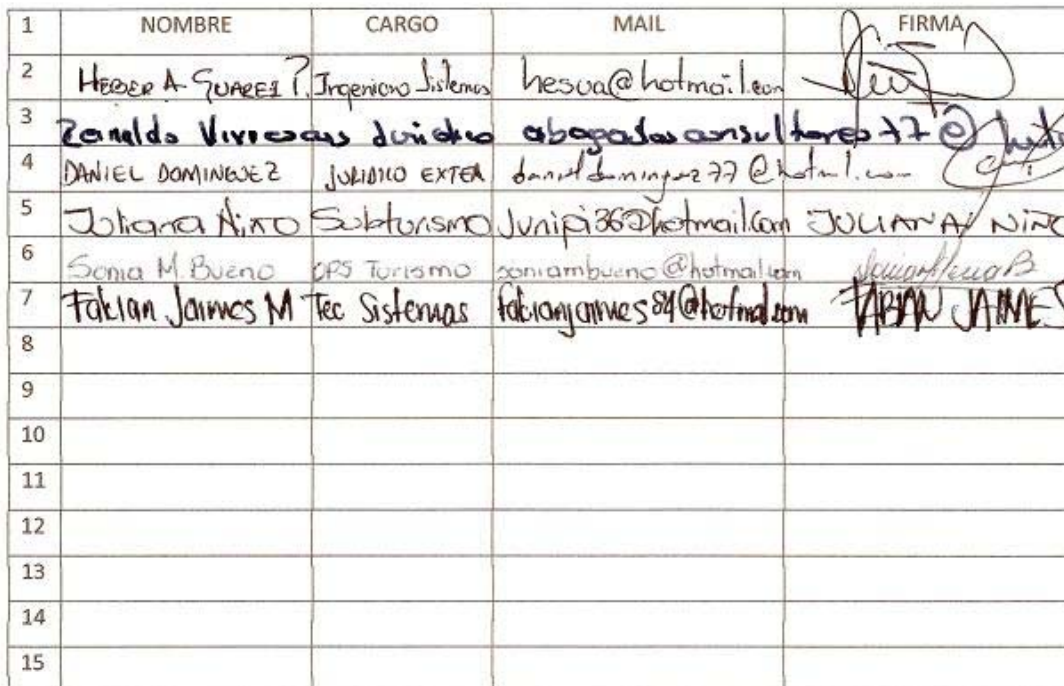 1 NOMBRE CARGO MAIL FIRMA
2 HEBER A. SUAREZ P. Ingeniero Sistemas hesua@hotmail.com
3 Juridico abogadosconsultores77@
4 DANIEL DOMINGUEZ JURIDICO EXTER danieldominguez77@hotmail.com
5 Juliana Niño Subturismo Junipi36@hotmail.com JULIANA NIÑO
6 Sonia M. Bueno OPS Turismo soniambueno@hotmail.com
7 Fabian Jaimes M Tec Sistemas fabianjaimes84@hotmail.com FABIAN JAIMES
8
9
10
11
12
13
14
15